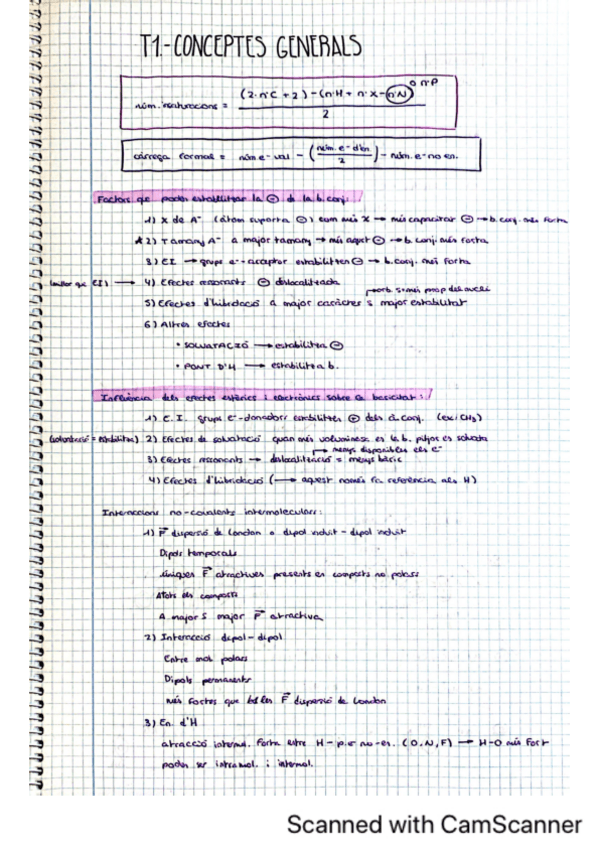 T1.-CONCEPTES GENERALS
núm. insaturacions = (2·nºC + 2) - (nºH + nºX - nºN) o nºP
2
càrrega formal = núm e- val - (núm. e- d'en. / 2) - núm. e- no en.
Factors que poden estabilitzar la ⊖ de la b. conj.:
1) X de A⁻ (àtom suporta ⊖) com més X → més capacitat ⊖ → b. conj. més forta
★2) Tamany A⁻ a major tamany → més ⊖ → b. conj. més forta
3) E.I. → grups e⁻-aceptor estabilitzen ⊖ → b. conj. més forta
(millor que EI) → 4) Efectes ressonants ⊖ deslocalitzada
→ orb. s més prop del nucli
5) Efectes d'hibridació a major caràcter s major estabilitat
6) Altres efectes
• SOLVATACIÓ → estabilitza ⊖
• PONT D'H → estabilitza b.
Influència dels efectes estèrics i electrònics sobre la basicitat:
1) E.I. grups e⁻-donadors estabilitzen ⊕ dels à. conj. (ex: CH₃)
(solvatació = estabilitza) 2) Efectes de solvatació quan més voluminosa es la b. pitjor es solvata
→ menys disponibles els e⁻
3) Efectes ressonants → deslocalització = menys bàsic
4) Efectes d'hibridació (→ aquest només fa referència als H)
Interaccions no-covalents intermoleculars:
1) F dispersió de London o dipol induït - dipol induït
Dipols temporals
úniques F atractives presents en composts no polars
A major S major F atractiva
2) Interacció dipol-dipol
Entre mol. polars
Dipols permanents
més fortes que les F dispersió de London
3) En. d'H
atracció intermol. forta entre H - p.e no-en. (O, N, F) → H-O més fort
poden ser intramol. i intermol.
Scanned with CamScanner